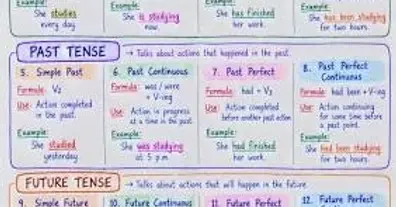 Example:
Example:
Example:
Example:
She studies
every day.
She is studying
now.
She has finished
her work.
She has been studying
for two hours.
PAST TENSE → Talks about actions that happened in the past.
5. Simple Past
Formula: V₂
Use: Action completed
in the past.
Example:
She studied
yesterday.
6. Past Continuous
Formula: was / were
+ V-ing
Use: Action in progress
at a time in the past.
Example:
She was studying
at 5 p.m.
7. Past Perfect
Formula: had + V₃
Use: Action completed
before another past action.
Example:
She had finished
her work.
8. Past Perfect
Continuous
Formula: had been + V-ing
Use: Action continuing
for some time before
a past point.
Example:
She had been studying
for two hours.
FUTURE TENSE → Talks about actions that will happen in the future.
9. Simple Future
10. Future Continuous
11. Future Perfect
12. Future Perfect